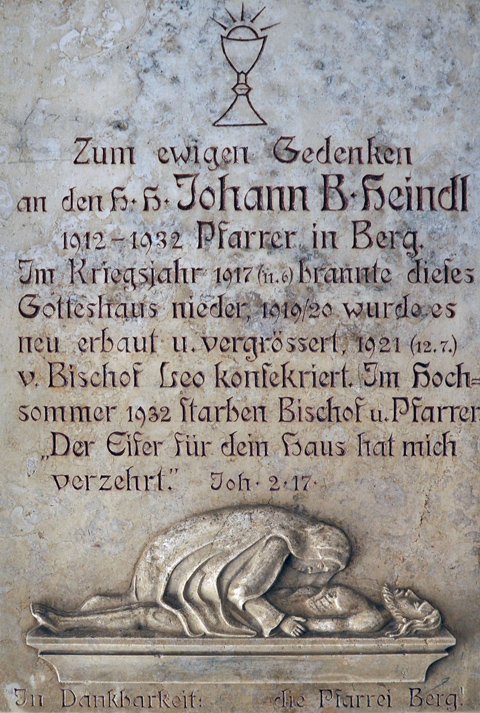 Zum ewigen Gedenken
an den H·H·Johann B·Heindl
1912-1932 Pfarrer in Berg.
Im Kriegsjahr 1917 (11.6) brannte dieses
Gotteshaus nieder, 1919/20 wurde es
neu erbaut u. vergrössert, 1921 (12.7.)
v. Bischof Leo konsekriert. Im Hoch=
sommer 1932 starben Bischof u. Pfarrer
„Der Eifer für dein Haus hat mich
verzehrt.” Joh·2·17·
In Dankbarkeit: die Pfarrei Berg!